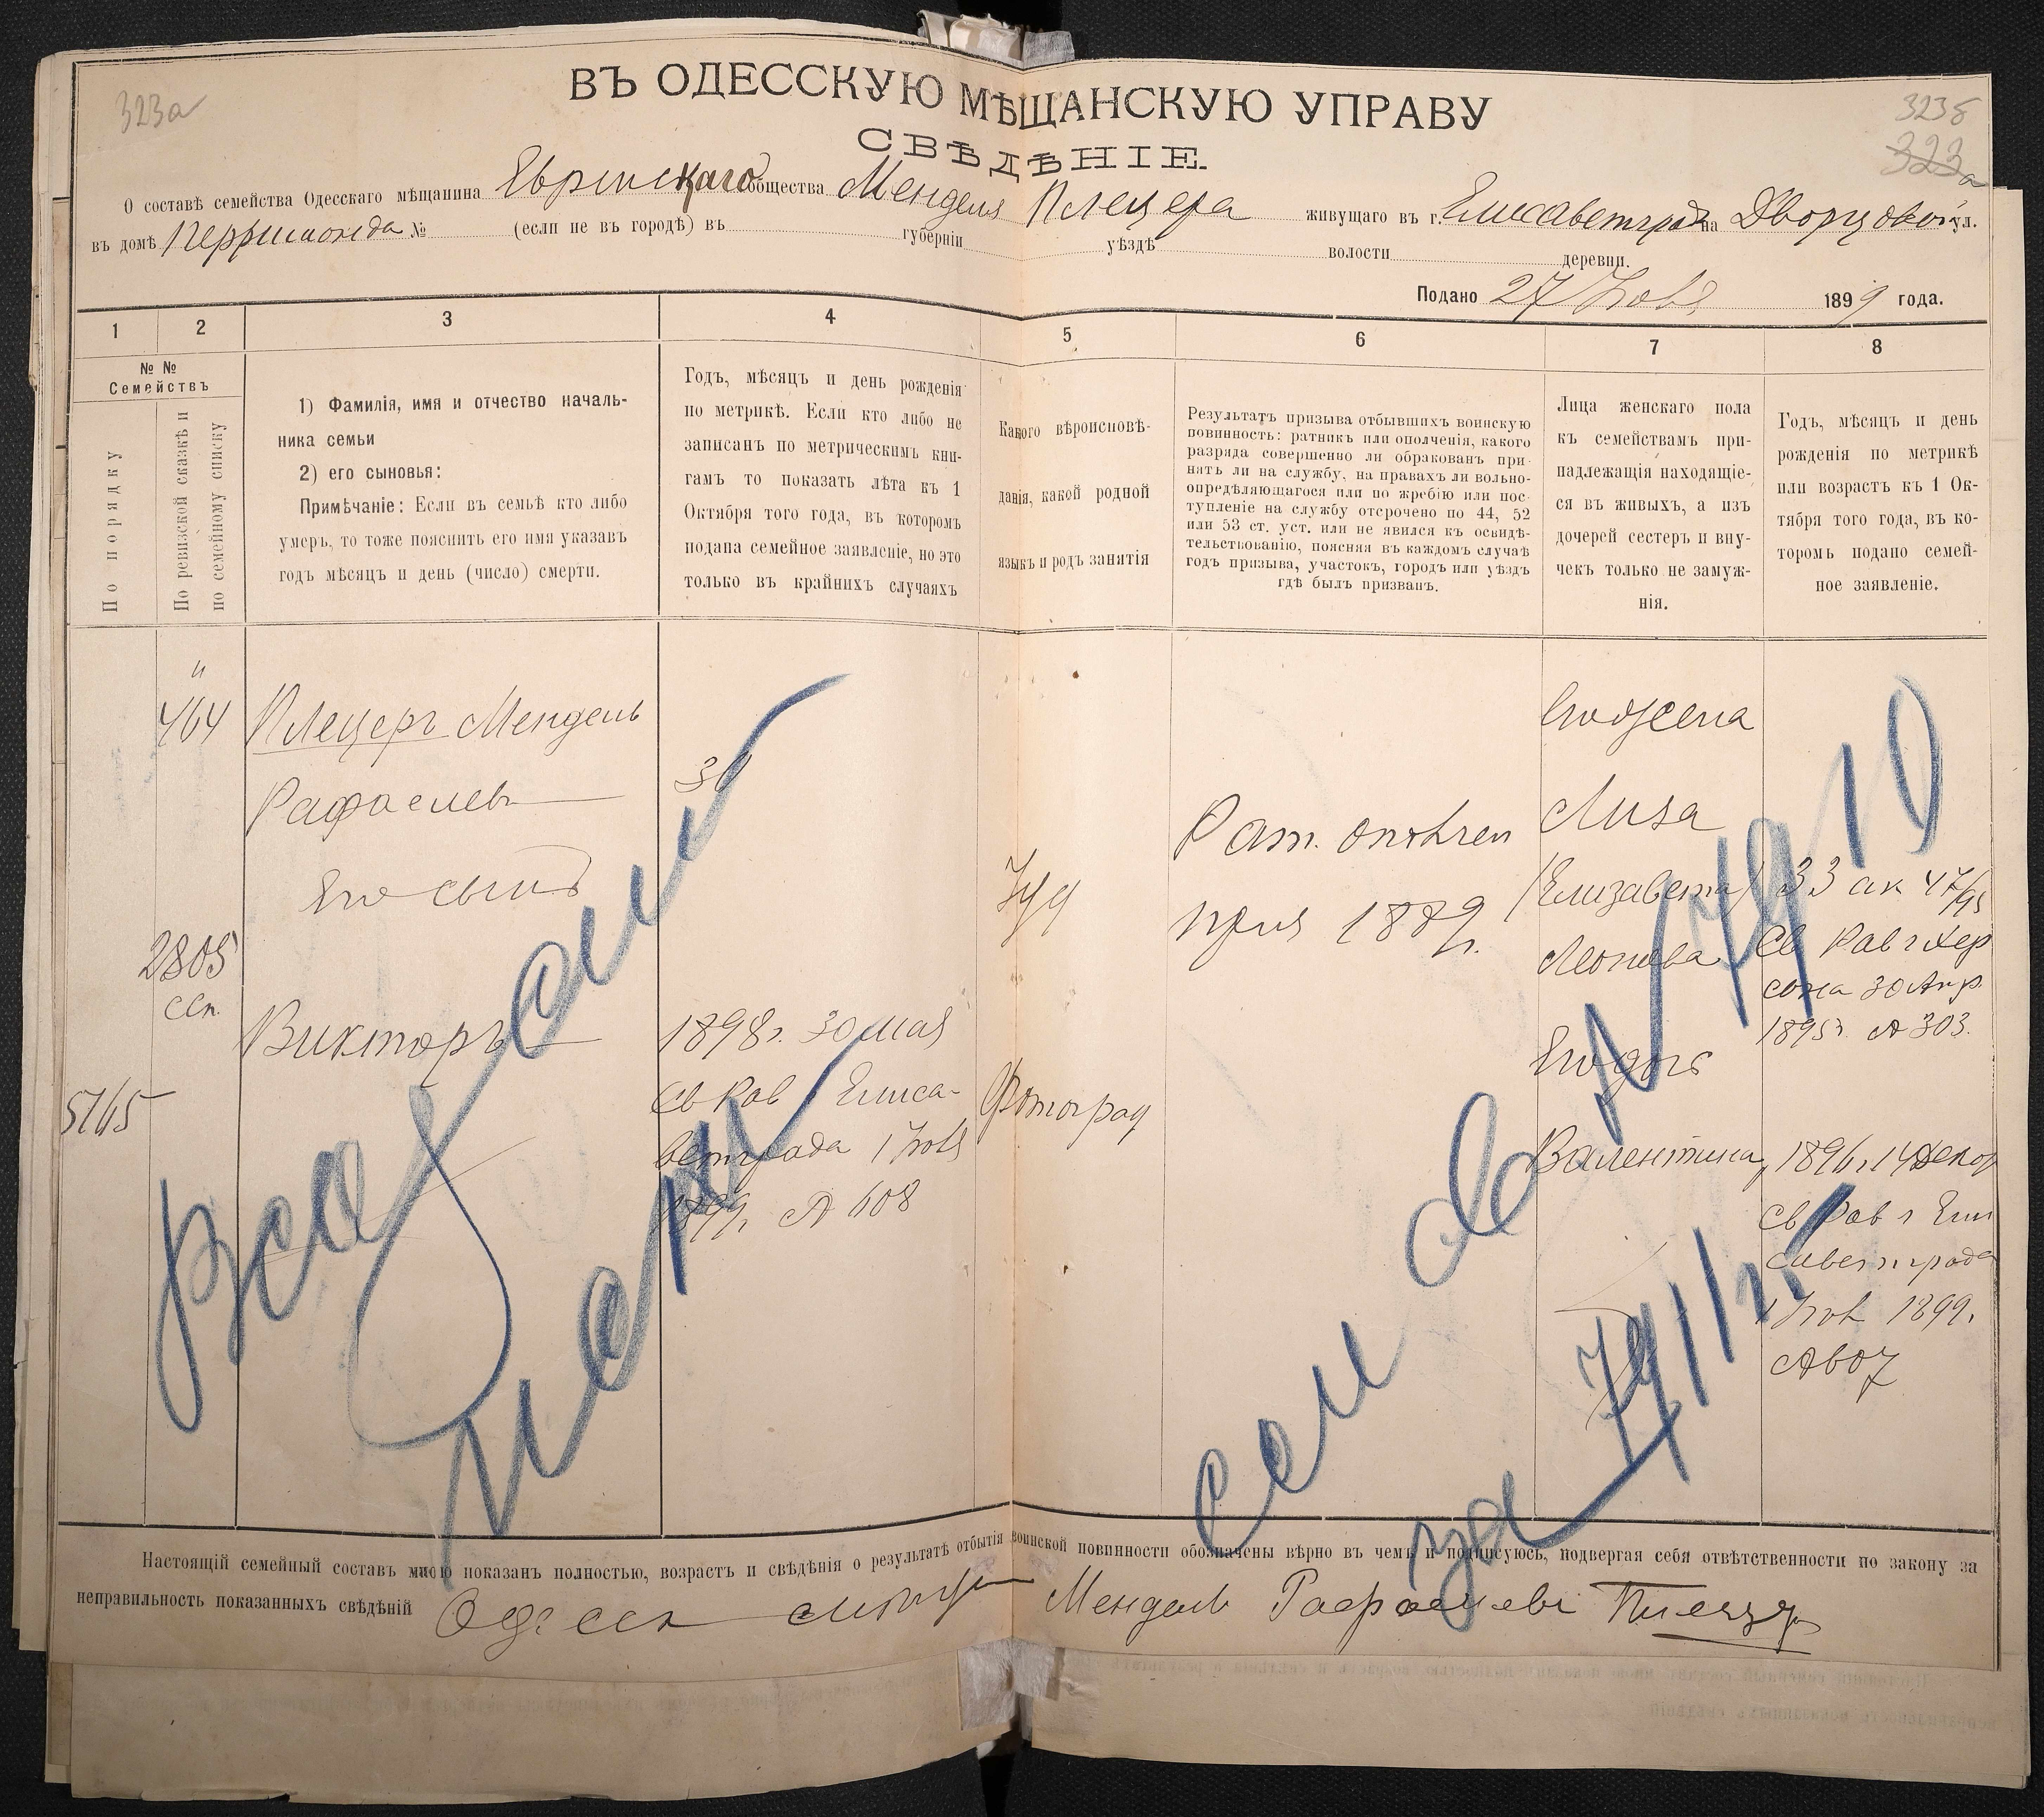 323а
323б
323а
ВЪ ОДЕССКУЮ МѢЩАНСКУЮ УПРАВУ
СВѢДѢНІЕ.
О составѣ семейства Одесскаго мѣщанина Еврейскаго общества Менделя Плецера живущаго въ г. Елисаветградѣ на Дворцовой ул.
въ домѣ № (если не въ городѣ) въ губерніи уѣздѣ волости деревни.
Подано 27 Ноября 1899 года.
1 2 3 4 5 6 7 8
№ №
Семействъ
По порядку
По ревизской сказкѣ и
по семейному списку
1) Фамилія, имя и отчество началь-
ника семьи
2) его сыновья:
Примѣчаніе: Если въ семьѣ кто либо
умеръ, то тоже пояснить его имя указавъ
годъ мѣсяцъ и день (число) смерти.
Годъ, мѣсяцъ и день рожденія
по метрикѣ. Если кто либо не
записанъ по метрическимъ кни-
гамъ то показать лѣта къ 1
Октября того года, въ которомъ
подана семейное заявленіе, но это
только въ крайнихъ случаяхъ
Какого вѣроисповѣ-
данія, какой родной
языкъ и родъ занятія
Результатъ призыва отбывшихъ воинскую
повинность: ратникъ или ополченія, какого
разряда совершенно ли обракованъ при-
нятъ ли на службу, на правахъ ли вольно-
опредѣляющагося или по жребію или пос-
тупленіе на службу отсрочено по 44, 52
или 53 ст. уст. или не явился къ освидѣ-
тельствованію, поясняя въ каждомъ случаѣ
годъ призыва, участокъ, городъ или уѣздъ
гдѣ былъ призванъ.
Лица женскаго пола
къ семействамъ при-
надлежащія находящіе-
ся въ живыхъ, а изъ
дочерей сестеръ и вну-
чекъ только не замуж-
нія.
Годъ, мѣсяцъ и день
рожденія по метрикѣ
или возрастъ къ 1 Ок-
тября того года, въ ко-
торомъ подано семей-
ное заявленіе.
464
Плецеръ Мендель
Рафаелевъ
30
Его сынъ
2805
ссп.
Викторъ
1898г. 30 мая
Св Рав г Елиса-
ветграда 1 Нояб
1899г. № 608
5165
Іуд
Фотограф
Рат. ополчен
приз 1889 г.
Его жена
Лиза
(Елизавета)
Леонова
33 ак 47/95
Св Рав г Хер
сона 30 Апр
1895г. № 303.
Его дочь
Валентина
1896г. 14 Декаб
Св Рав г Ели
саветграда
1 Нов 1899г.
№ 607
сем
за
Настоящій семейный составъ мною показанъ полностью, возрастъ и свѣдѣнія о результатѣ отбытія воинской повинности обозначены вѣрно въ чемъ и подписуюсь, подвергая себя отвѣтственности по закону за
неправильность показанныхъ свѣдѣній Одесск мѣщ Мендель Рафаелевъ Плецеръ